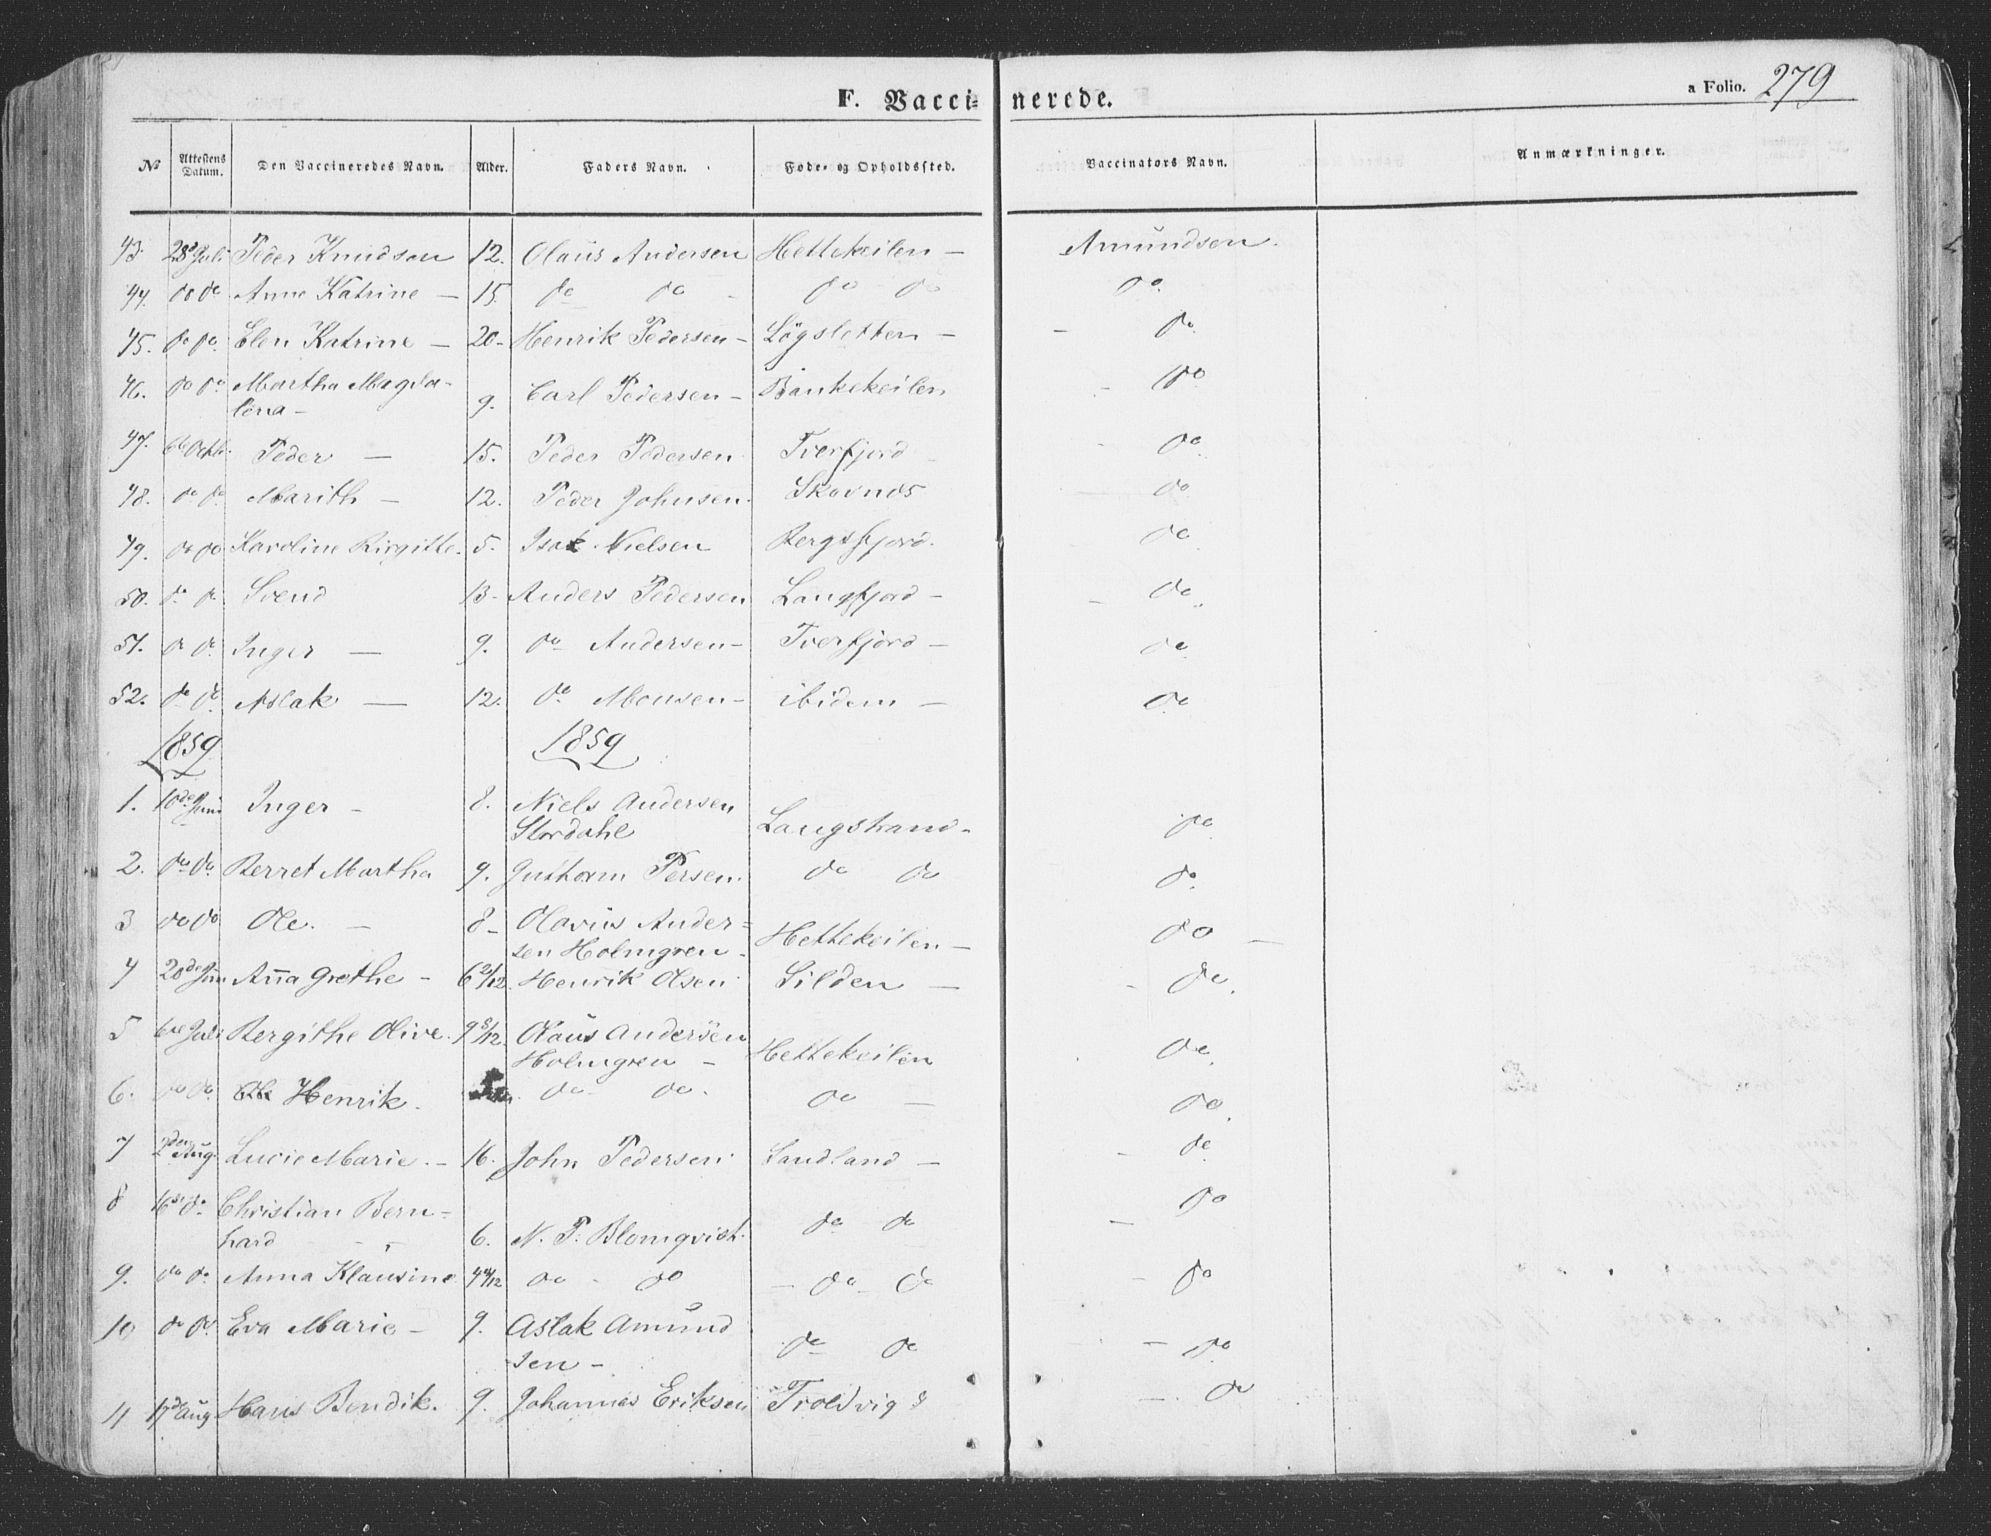 F. Vaccinerede.
a Folio. 279
№ Attestens Datum. Den Vaccineredes Navn. Alder. Faders Navn. Føde- og Opholdssted. Vaccinators Navn. Anmærkninger.
43. 28de Juli Peder Knudsen 12. Olaüs Andersen Hettekeilen — Amundsen.
44. do do Anne Katrine — 15 do do do do do.
45. do do. Elen Katrine — 20 - Henrik Pedersen - Lögsletten — — do.
46. do do Martha Magda-
lena - 9. Carl Pedersen - Bankekeilen - do
47. 6te Octbr. Peder — 15. Peder Pedersen Tverfjord - do
48. do do Marith — 12. Peder Johnsen. Skovnes — do
49. do do Karoline Birgitte. 5. Isak Nielsen Bergsfjord. - do
50. do do Svend 13 - Anders Pedersen Langfjord - - do
51. do do Inger — 9. do Andersen - Tverfjord — do
52. do do. Aslak — 12. do Monsen - ibidem — do
1859 1859
1. 10de Juni Inger - 8. Niels Andersen
Stordahl Langstrand - do
2. do do. Berret Martha 9. Guthorm Persen. do do do.
3 do do Ole. — 8 - Olavus Ander=
sen Holmgren - Hettekeilen — do —
4 20de Juni Anna Grethe - 6 2/12. Henrik Olsen Silden — - do.
5 6te Juli Bergithe Olive. 9 8/12. Olaus Andersen
Holmgren - Hettekeilen do.
6. do do. Henrik. do do. do — do.
7 2den Aug. Lucie Marie. - 16. John Pedersen Sandland — - do
8 16de do Christian Bern=
hard - - 6. N. P. Blomqvist. do do — do
9. do do. Anna Klausine 4 4/12 do - do - do do — do
10 do do. Eva Marie - 9. Aslak Amund
sen - do do — do.
11 17de Aug Hans Bendik. 9. Johannes Eriksen Troldvig — do